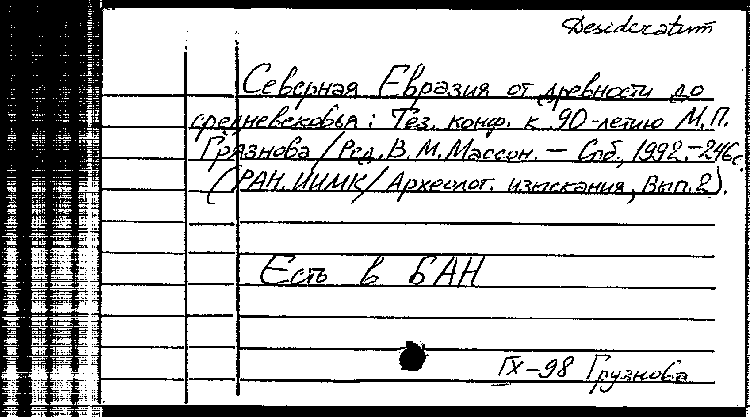 Desideratum
Северная Евразия от древности до
средневековья: Тез. конф. к 90-летию М.П.
Грязнова / Ред. В. М. Массон. – Спб., 1992.-246с.
(РАН. ИИМК / Археолог. изыскания, Вып. 2).
Есть в БАН
IX-98 Грузнова